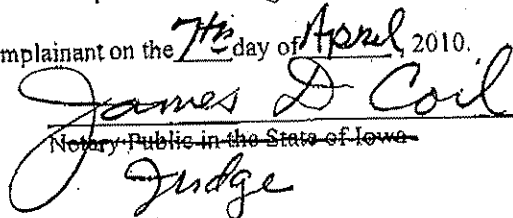 mplainant on the 7th day of April, 2010.
James D Coil
Notary Public in the State of Iowa
Judge